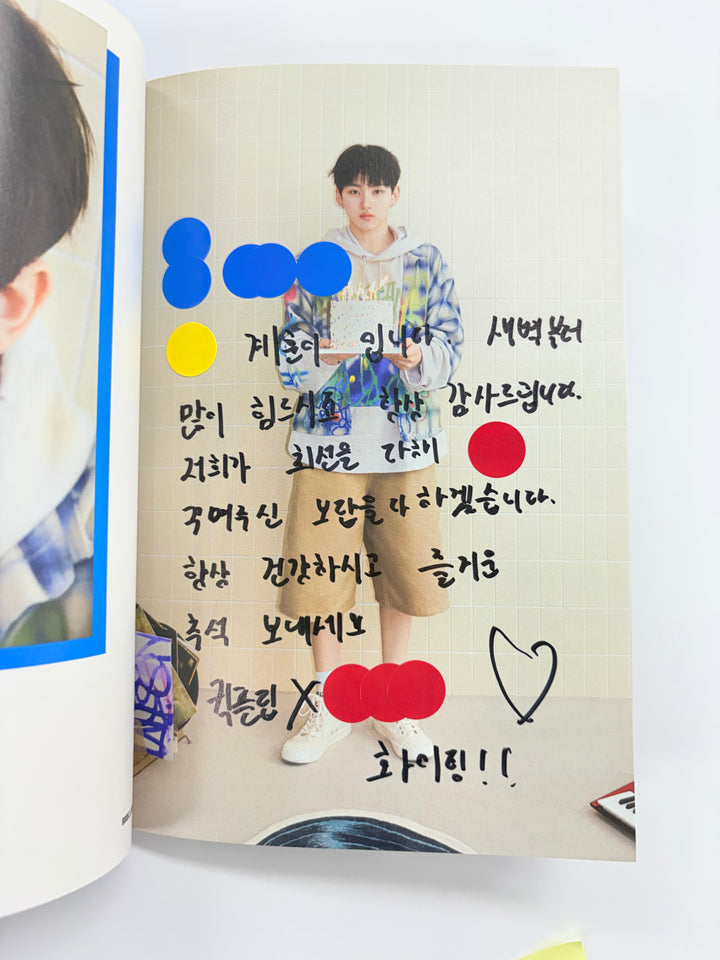 계훈이 입니다. 새벽부터
많이 힘드시죠 항상 감사드립니다.
저희가 최선을 다해
하겠습니다.
항상 건강하시고 즐거운
추석 보내세요
킥플립 X
화이팅!!